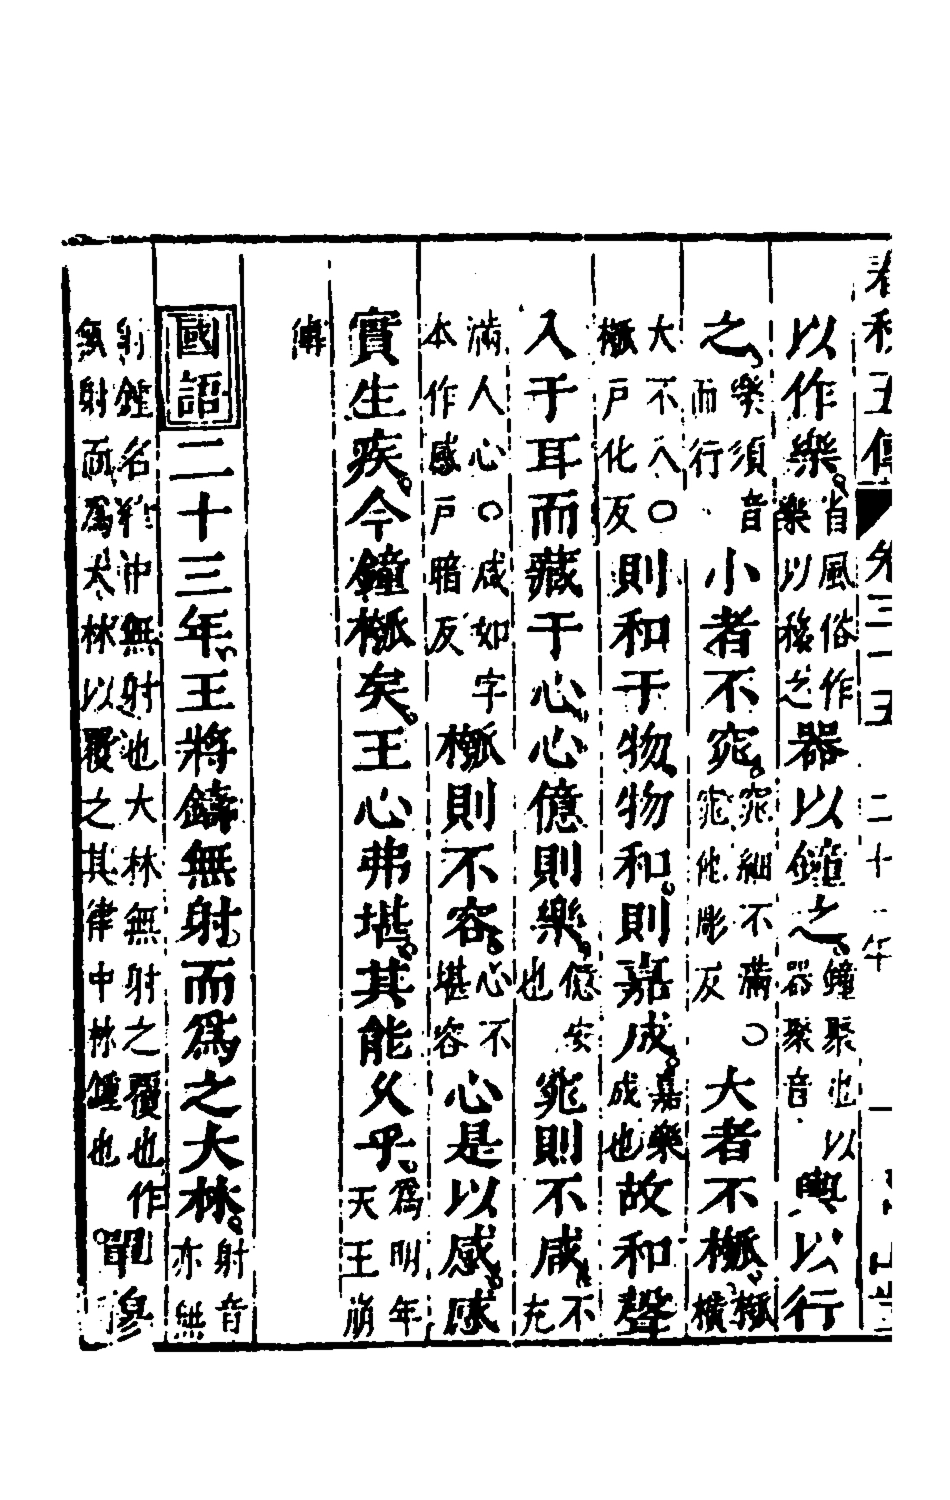 春秋五傳 卷三十五 二十一年 一
以作樂。省風俗作樂以移之器以鐘之。鐘聚也以器聚音輿以行
之。樂須音而行小者不窕。窕細不滿○窕他彫反大者不槬。槬橫
大不入○槬戶化反則和于物。物和。則嘉成。嘉樂成也故和聲
入于耳而藏于心。心億則樂。億安也窕則不咸。不充
滿人心○咸如字本作感戶暗反槬則不容。心不堪容心是以感。感
實生疾。今鐘槬矣。王心弗堪。其能久乎。爲明年天王崩
傳
國語二十三年。王將鑄無射。而爲之大林。射音亦無
射鐘名律中無射也大林無射之覆也作無射而爲大林以覆之其律中林鍾也○單穆